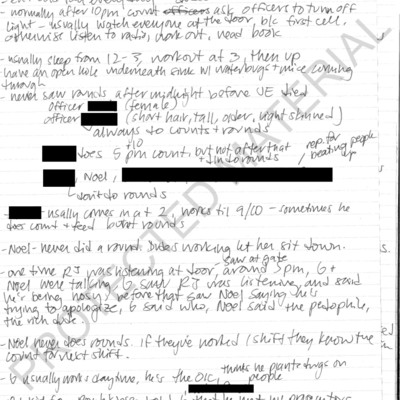 - normally after 10pm count officers ask officers to turn off
light - usually watch everyone at the door, b/c first cell.
otherwise listen to radio, work out, read book
- usually sleep from 12-3, workout at 3, then up
- have an open hole underneath sink w/ waterbugs + mice coming
through
- never saw rounds after midnight before JE died
officer (female)
officer (short hair, tall, order, light skinned)
always do counts + rounds
+10
does 5 pm count, but not after that
+ din rounds
rep. for beating people up
, Noel,
won't do rounds
- usually comes in at 2, works til 9/10 - sometimes he
does count + feed but not rounds
- Noel - never did a round. Dudes working let her sit down.
saw at gate
- one time RJ was listening at door, around 3pm, G +
Noel were talking. G saw RJ was listening, and said
he's being nosy. before that saw Noel saying he's
trying to apologize, G said who, Noel said the pedophile,
the rich dude.
- Noel never does rounds. If they've worked 1 shift they know the
count for next shift.
- G usually works daytime, he's the OIC, thinks he plants drugs on
people
PROTECTED MATERIAL